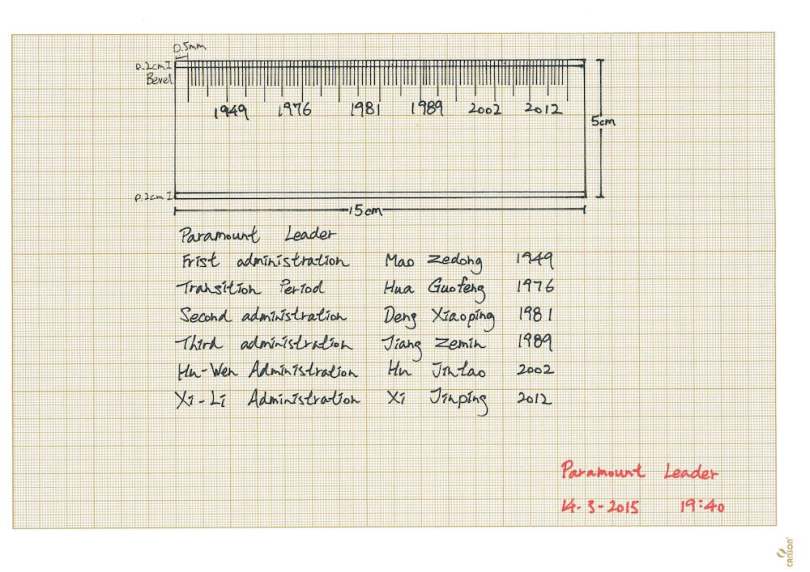 0.5mm
0.2cm
Bevel
1949 1976 1981 1989 2002 2012
5cm
0.2cm
15cm
Paramount Leader
Frist administration Mao Zedong 1949
Transition Period Hua Guofeng 1976
Second administration Deng Xiaoping 1981
Third administration Jiang Zemin 1989
Hu-Wen Administration Hu Jintao 2002
Xi-Li Administration Xi Jinping 2012
Paramount Leader
14-3-2015 19:40
canson